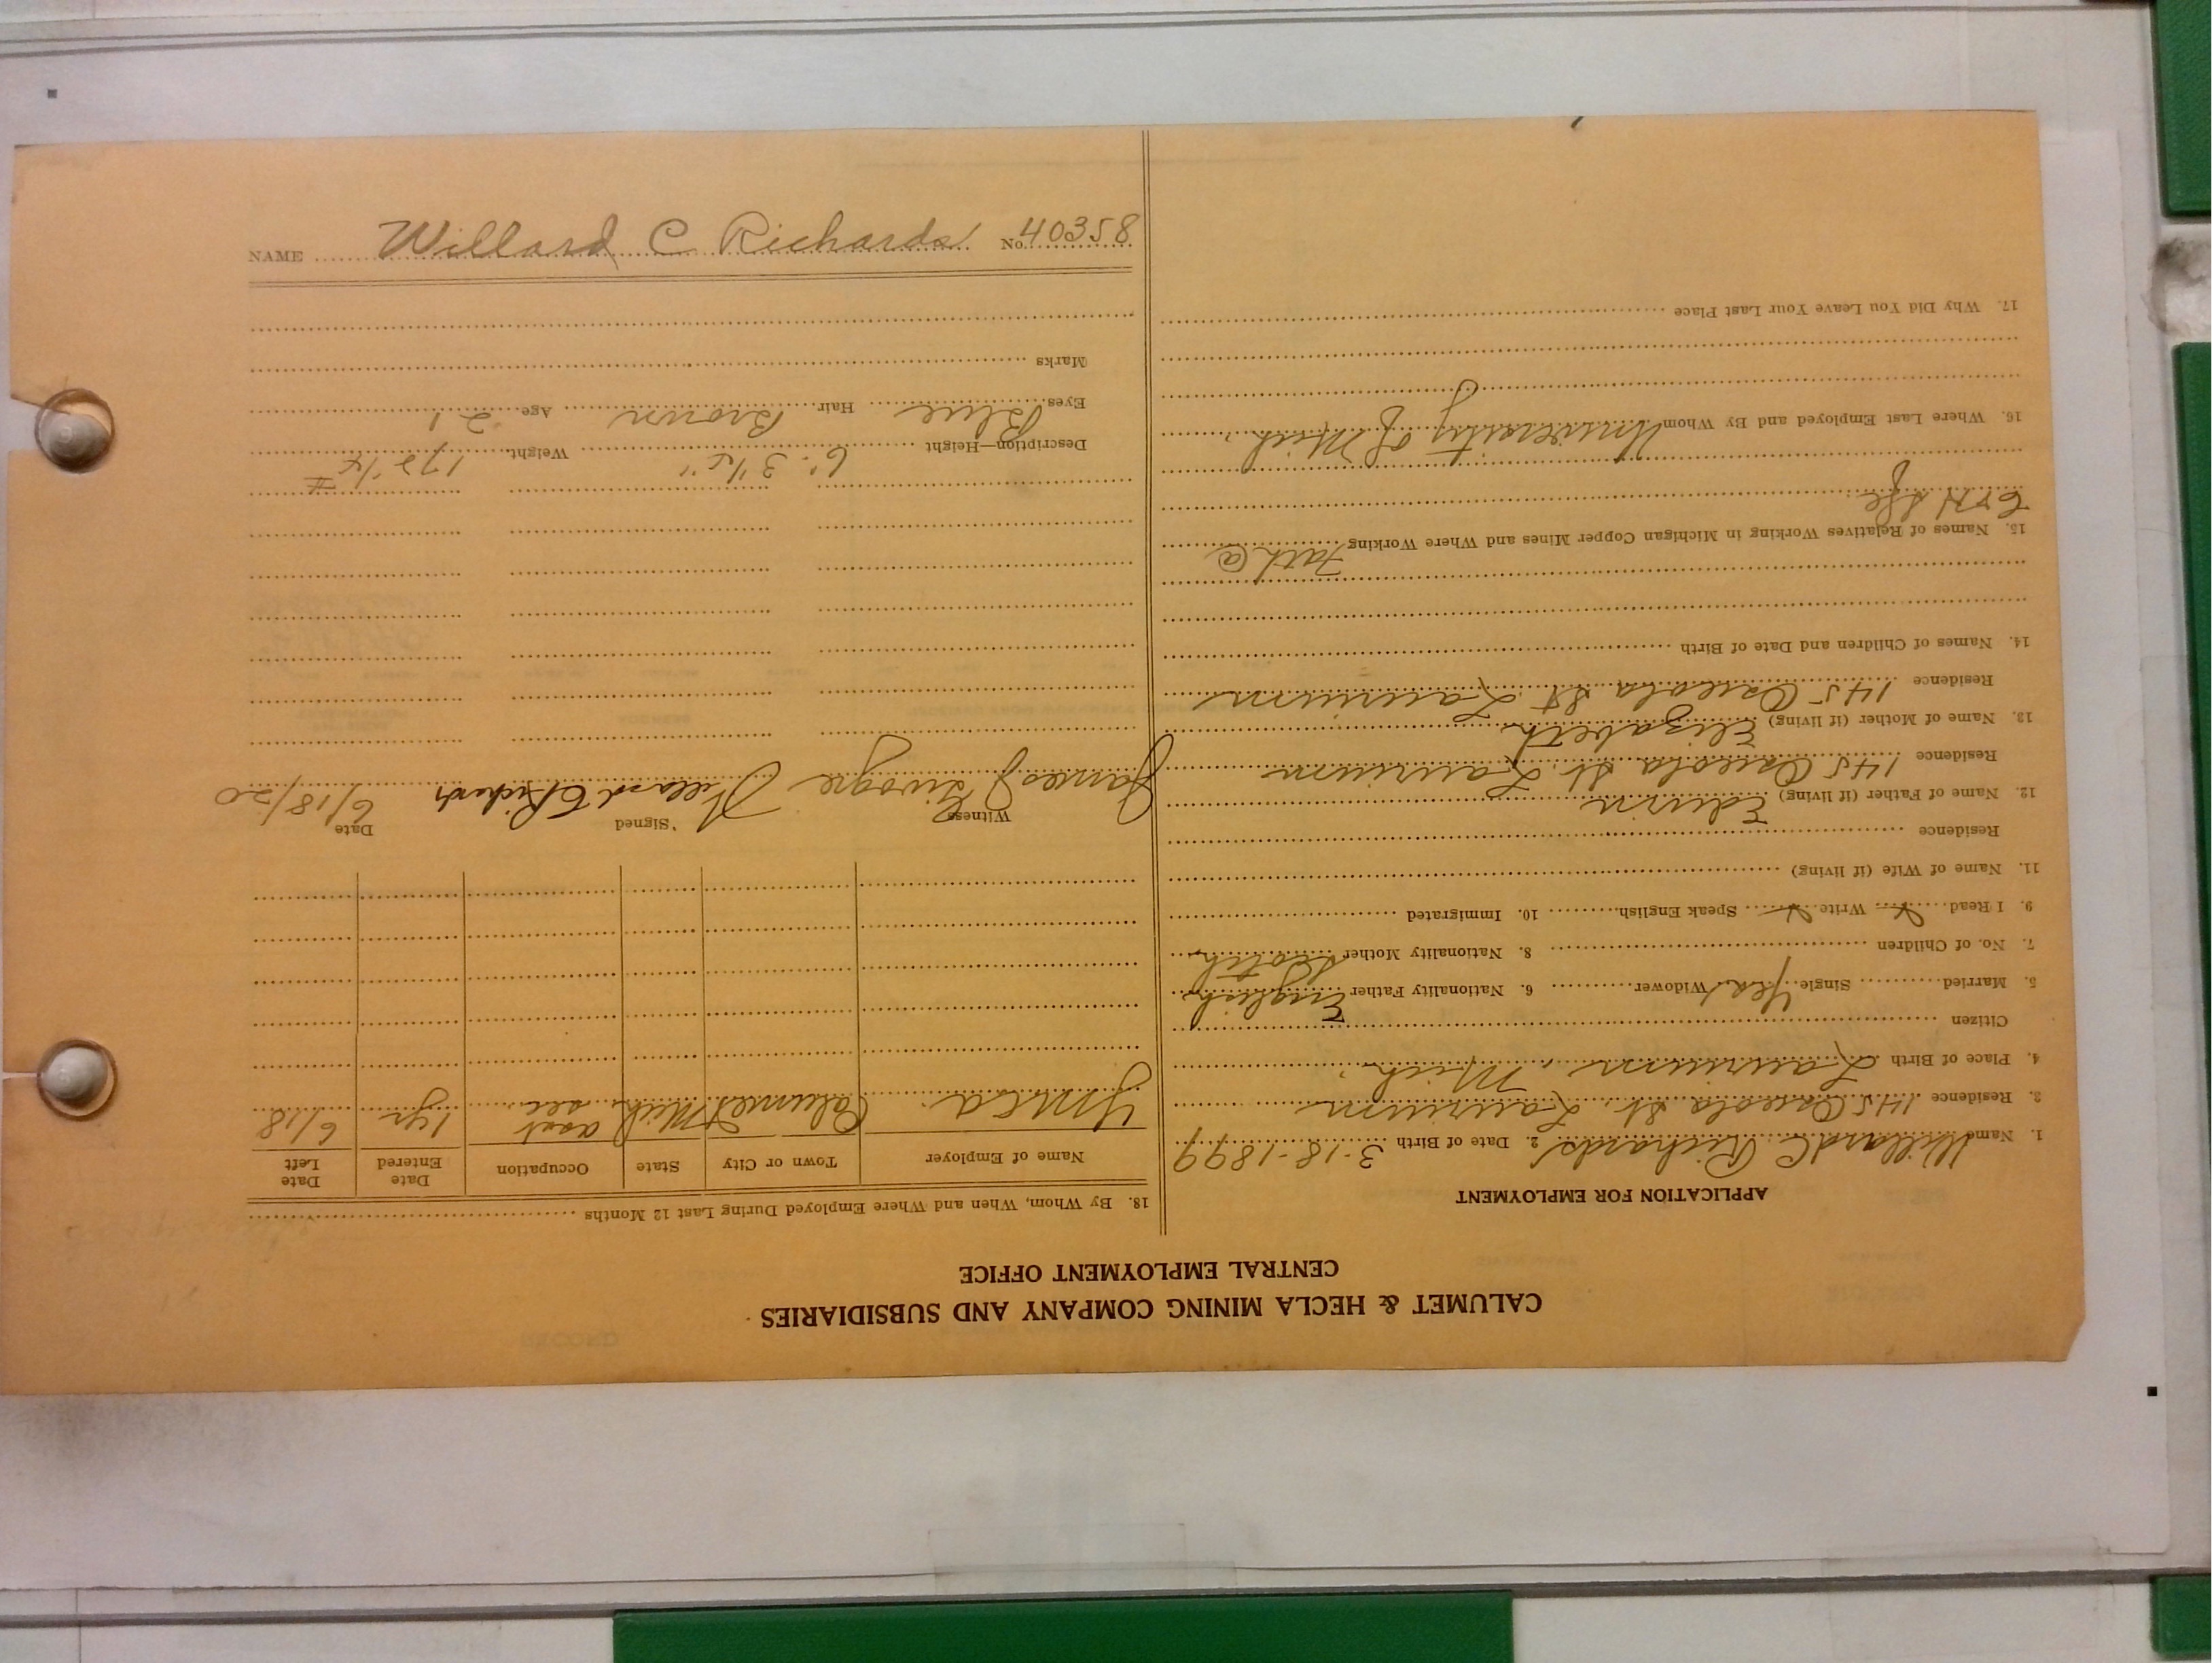 CALUMET & HECLA MINING COMPANY AND SUBSIDIARIES
CENTRAL EMPLOYMENT OFFICE
APPLICATION FOR EMPLOYMENT
1. Name Willard C. Richards 2. Date of Birth 3-18-1899
3. Residence 145 Osceola St. Laurium
4. Place of Birth Laurium, Mich.
Citizen
5. Married Single Yes Widower 6. Nationality Father English
7. No. of Children 8. Nationality Mother Scotch
9. I Read Write Speak English 10. Immigrated
11. Name of Wife (if living)
Residence
12. Name of Father (if living) Edwin
Residence 145 Osceola St. Laurium
13. Name of Mother (if living) Elizabeth
Residence 145 Osceola St. Laurium
14. Names of Children and Date of Birth
15. Names of Relatives Working in Michigan Copper Mines and Where Working Fath @
16. Where Last Employed and By Whom University of Mich.
17. Why Did You Leave Your Last Place
18. By Whom, When and Where Employed During Last 12 Months
Name of Employer Town or City State Occupation Date Entered Date Left
YMCA Calumet Mich. asst sec. 1 yr 6/18
Witness Signed Date
James J Willard C Richards 6/18/20
Description—Height 6' 3 1/2" Weight
Eyes Blue Hair Brown Age 21
Marks
NAME Willard C Richards No. 40358